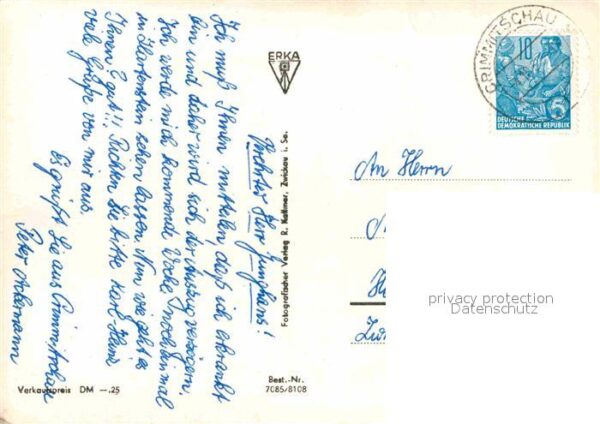 Werter Herr Junghans!
Ich muß Ihnen mitteilen daß ich erkrankt
bin und daher wird sich der Auszug verzögern.
Ich werde mich kommende Woche nocheinmal
in Hartenstein sehen lassen. Nun wie geht es
Ihnen? gut!! Richten Sie bitte Karl Heinz
viele Grüße von mir aus.
Es grüßt Sie aus Crimmitschau
Peter Ackermann
Verkaufspreis DM —.25
ERKA
Fotografischer Verlag R. Kallmer, Zwickau i. Sa.
Best.-Nr.
7085/8108
CRIMMITSCHAU
10
5
DEUTSCHE
DEMOKRATISCHE REPUBLIK
An Herrn
privacy protection
Datenschutz